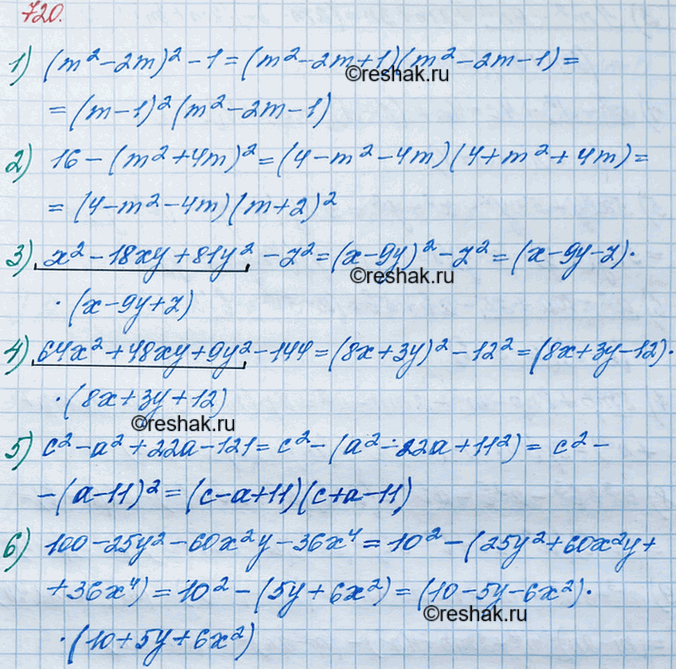 720.
1) (m² - 2m)² - 1 = (m² - 2m + 1)(m² - 2m - 1) =
©reshak.ru
= (m - 1)² (m² - 2m - 1)
2) 16 - (m² + 4m)² = (4 - m² - 4m)(4 + m² + 4m) =
= (4 - m² - 4m)(m + 2)²
3) x² - 18xy + 81y² - z² = (x - 9y)² - z² = (x - 9y - z)·
©reshak.ru
·(x - 9y + z)
4) 64x² + 48xy + 9y² - 144 = (8x + 3y)² - 12² = (8x + 3y - 12)·
·(8x + 3y + 12)
©reshak.ru
5) c² - a² + 22a - 121 = c² - (a² - 22a + 11²) = c² -
- (a - 11)² = (c - a + 11)(c + a - 11)
6) 100 - 25y² - 60x²y - 36x⁴ = 10² - (25y² + 60x²y +
+ 36x⁴) = 10² - (5y + 6x²) = (10 - 5y - 6x²)·
©reshak.ru
·(10 + 5y + 6x²)